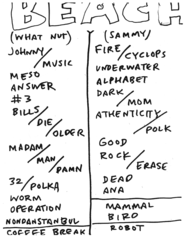 BEACH
(WHAT NUT)
JOHNNY/MUSIC
MESO
ANSWER
#3
BILLS/DIE/OLDER
MADAM/MAN/DAMN
32/POLKA
WORM
OPERATION
NONDANSTANBUL
COFFEE BREAK
(SAMMY)
FIRE/CYCLOPS
UNDERWATER
ALPHABET
DARK/MOM
ATHENTICITY/POLK
GOOD
ROCK/ERASE
DEAD
ANA
MAMMAL
BIRD
ROBOT